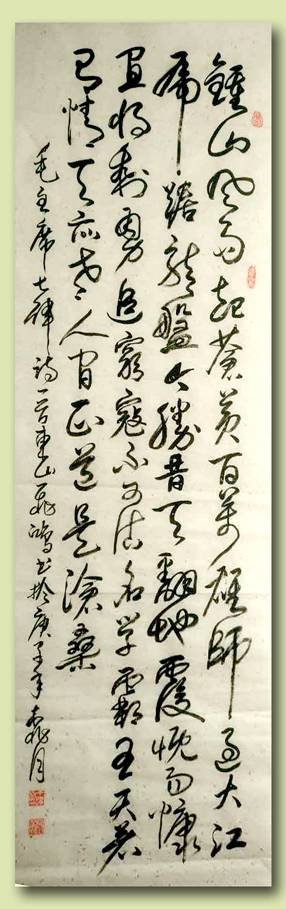 鍾山风雨起蒼黄百萬雄師過大江
虎踞龍盤今勝昔天翻地覆慨而慷
宜将剩勇追窮寇不可沽名学霸王天若
有情天亦老人间正道是滄桑
毛主席七律詩一首東山鴻书於庚子年月